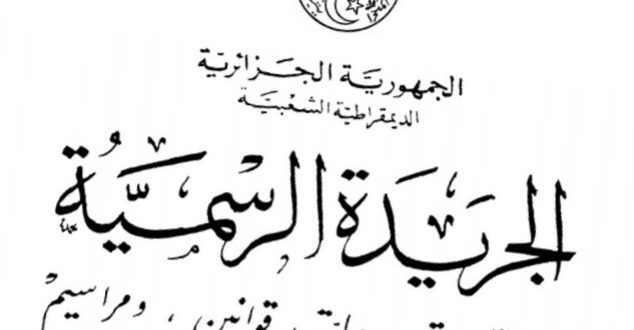 الجمهوريّة الجزائريّة
الديمقراطيّة الشعبيّة
الجريدة الرسميّة
قوانين، ومراسيم